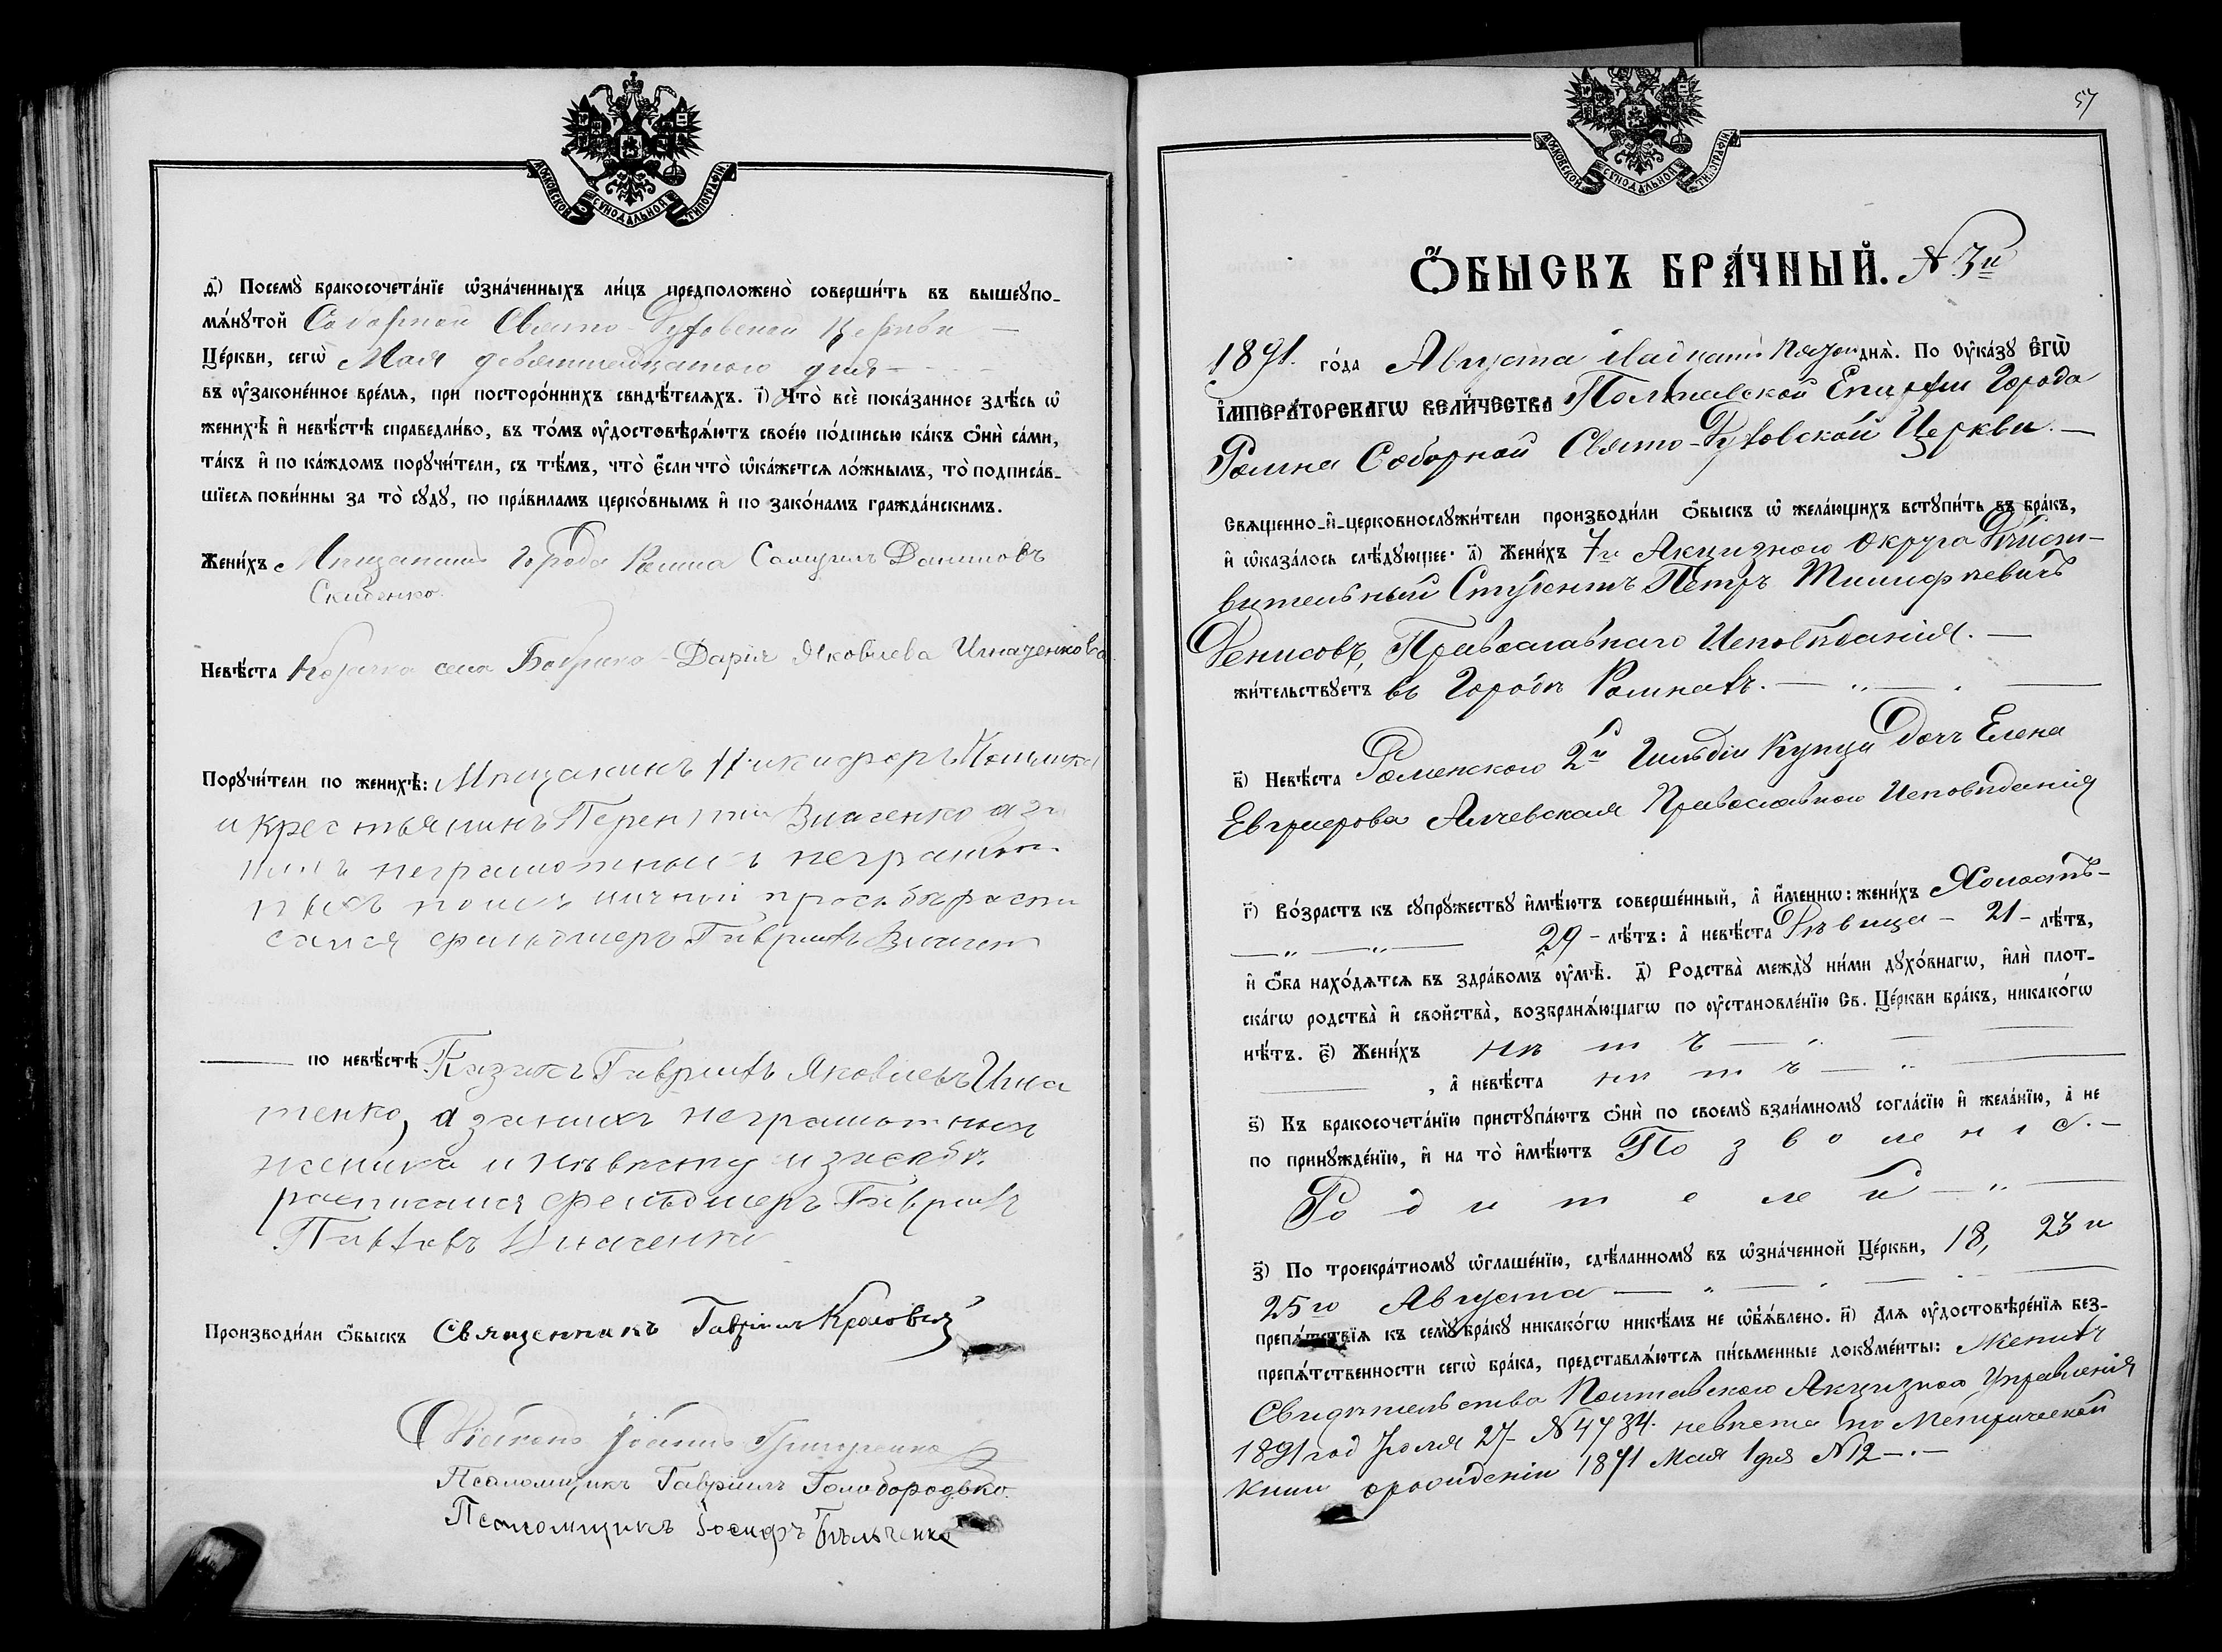 МОСКОВСКОЙ СѴНОДАЛЬНОЙ ТИПОГРАФІИ
д҃) Посемꙋ̀ бракосочета́нїе ѡ҆зна́ченныхъ ли́цъ предположено̀ соверши́ть въ вышеꙋпо-
мѧ́нꙋтой Соборной Свято-Духовской Церкви —
Це́ркви, сегѡ̀ Мая девятнадцатого дня —
въ ᲂу҆законе́нное вре́мѧ, при посторо́ннихъ свидѣ́телѧхъ. і҃) Что̀ всѐ пока́занное здѣ́сь ѡ҆
женихѣ̀ и҆ невѣ́стѣ справедли́во, въ то́мъ ᲂу҆достовѣрѧ́ютъ свое́ю по́дписью ка́къ ѻ҆нѝ са́ми,
та́къ и҆ по ка́ждомъ порꙋчи́тели, съ тѣ́мъ, что̀ є҆́сли что̀ ѡ҆ка́жетсѧ ло́жнымъ, то̀ подписа́в-
шїесѧ пови́нны за то̀ сꙋдꙋ̀, по пра́виламъ церко́внымъ и҆ по зако́намъ гражда́нскимъ.
Жени́хъ Мещанинъ Города Ромна Самуилъ Даниловъ
Скибенко.
Невѣ́ста Козачка села Бобрика - Дарія Яковлева Игнатенкова
Порꙋчи́тели по женихѣ̀: Мещанинъ Никифоръ
и крестьянинъ Терентій Власенко а за
нихъ неграмотныхъ неграмот
ныхъ по ихъ личной просьбѣ распи
сался фельдшеръ Гавриилъ Власен
по невѣ́стѣ Казакъ Гавриилъ Яковлевъ Игна
тенко, а за нихъ неграмотныхъ
жениха и невѣсту и за себя
расписался фельдшеръ Гавриилъ
Павловъ Власенко
Производи́ли ѻ҆́быскъ Священникъ Гавріилъ
Діаконъ Іоаннъ Григоренко
Псаломщикъ Гавріилъ Голобородько.
Псаломщикъ Іосифъ Бѣльченко
57
МОСКОВСКОЙ СѴНОДАЛЬНОЙ ТИПОГРАФІИ
Ѻ҆́БЫСКЪ БРА́ЧНЫЙ. № 3й
1891. го́да Августа двадцать днѧ̀. По ᲂу҆ка́зꙋ Є҆ГѠ̀
І҆МПЕРА́ТОРСКАГѠ ВЕЛИ́ЧЕСТВА Полтавской Епархіи Города
Ромна Соборной Свято-Духовской Церкви. —
Свѧщенно-и҆-церковнослꙋжи́тели производи́ли ѻ҆́быскъ ѡ҆ жела́ющихъ встꙋпи́ть въ бра́къ,
и҆ ѡ҆каза́лось слѣ́дꙋющее· а҃) Жени́хъ 7го Акцизного Округа Дѣйст-
вительный Студентъ Петръ
Денисовъ, Православнаго Исповѣданія. —
жи́тельствꙋетъ въ Городѣ Ромнахъ. —
в҃) Невѣ́ста Роменского 2й Гильдіи Купца Дочь Елена
Алчевская Православного Исповѣданія
г҃) Во́зрастъ къ сꙋпрꙋ́жествꙋ и҆мѣ́ютъ соверше́нный, а҆ и҆́меннѡ: жени́хъ Холостъ-
29 - лѣ́тъ: а҆ невѣ́ста Дѣвица - 21 - лѣ́тъ,
и҆ ѻ҆́ба нахо́дѧтсѧ въ здра́вомъ ᲂу҆мѣ̀. д҃) Родства̀ междꙋ̀ ни́ми дꙋхо́внагѡ, и҆лѝ плот-
ска́гѡ родства̀ и҆ свойства̀, возбранѧ́ющагѡ по ᲂу҆становле́нїю Св. Це́ркви бра́къ, никако́гѡ
нѣ́тъ. є҃) Жени́хъ нѣтъ —
, а҆ невѣ́ста нѣтъ —
ѕ҃) Къ бракосочета́нїю пристꙋпа́ютъ ѻ҆нѝ по своемꙋ̀ взаи́мномꙋ согла́сїю и҆ жела́нїю, а҆ не
по принꙋжде́нїю, и҆ на то̀ и҆мѣ́ютъ Позволеніе. —
Родителей —
з҃) По троекра́тномꙋ ѡ҆глаше́нїю, сдѣ́ланномꙋ въ ѡ҆зна́ченной Це́ркви, 18, 23 и
25го Августа —
препѧ́тствїѧ къ семꙋ̀ бра́кꙋ никако́гѡ никѣ́мъ не ѡ҆б̾ѧ́влено. и҃) Длѧ ᲂу҆достовѣре́нїѧ без-
препѧ́тственности сегѡ̀ бра́ка, представлѧ́ютсѧ пи́сьменные докꙋме́нты: Женихъ
Свидѣтельство Полтавского Акцизного Управленія
1891 год Іюля 27 № 4734. невѣста по Метрической
книги о рожденіи 1871 Мая 1 дня № 12 —.—